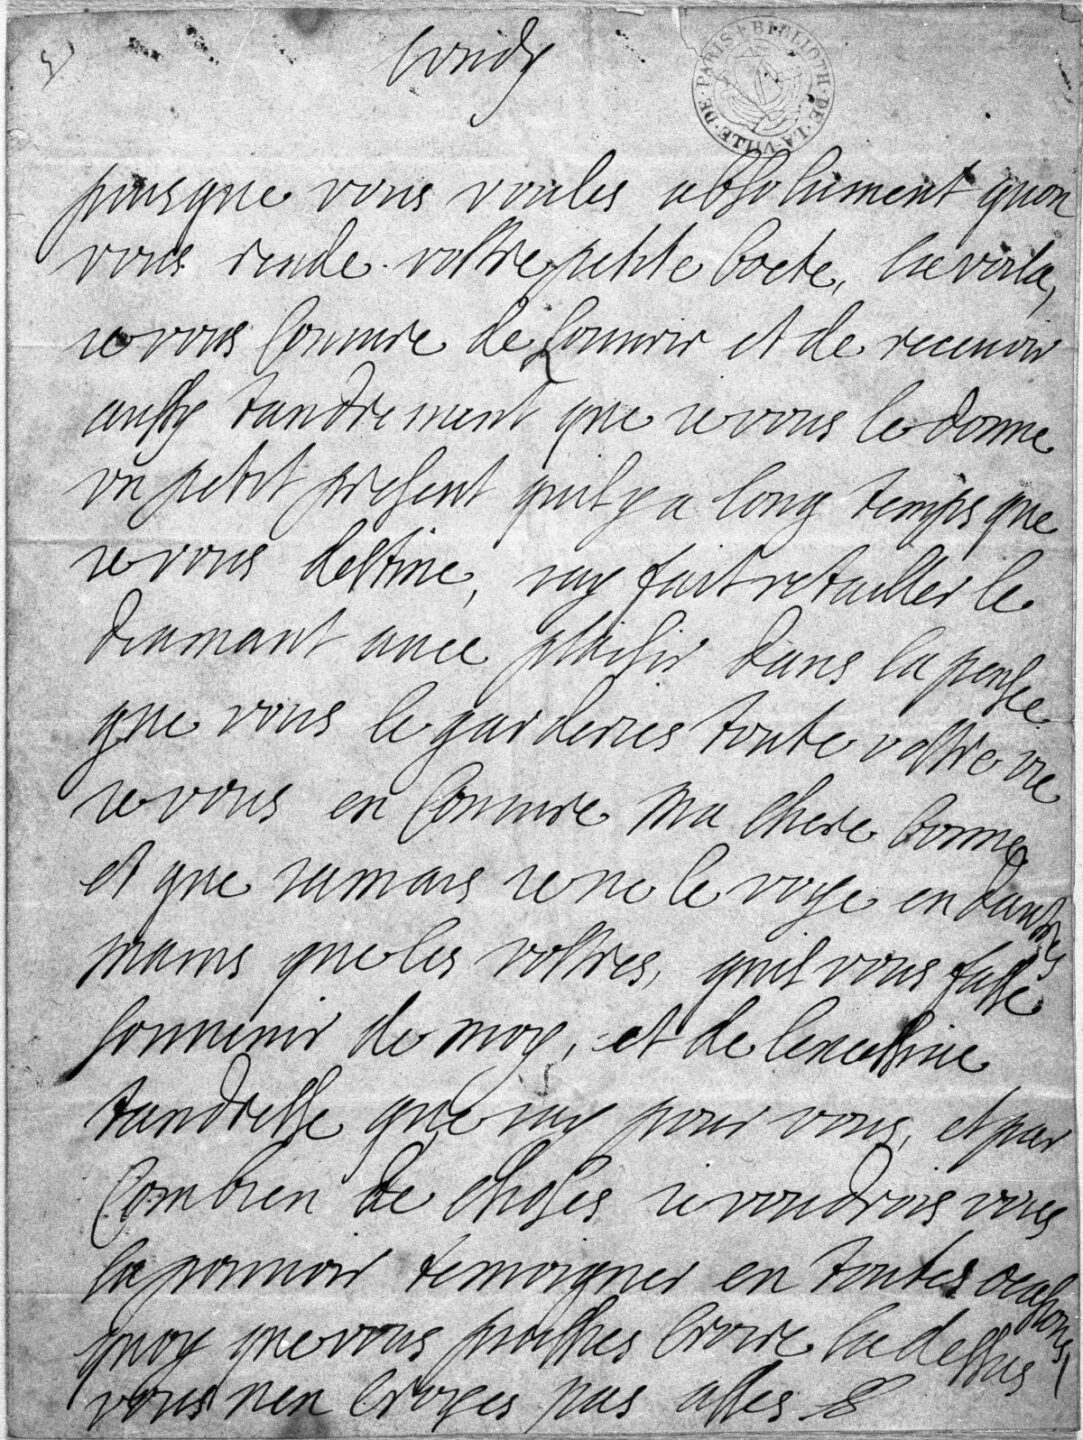 lundy
PARIS BIBLIOTH DE LA VILLE DE
puisque vous voules absolument quon
vous rende vostre petite boete, la voila,
ie vous coniure de conserver et de recevoir
aussy tandrement que ie vous le donne
un petit present quil y a long temps que
ie vous destine, iay fait retailler le
diamant avec plaisir dans la pensee
que vous le garderies toute vostre vie
ie vous en coniure ma chere bonne
et que iamais ie ne le voye en dautres
mains que les vostres, quil vous fasse
souvenir de moy, et de lexcessive
tandresse que iay pour vous, et par
combien de choses ie voudrois vous
la pouvoir temoigner en toutes ocasions,
quoy que vous puissies croire la dessus
vous nen croyes pas asses